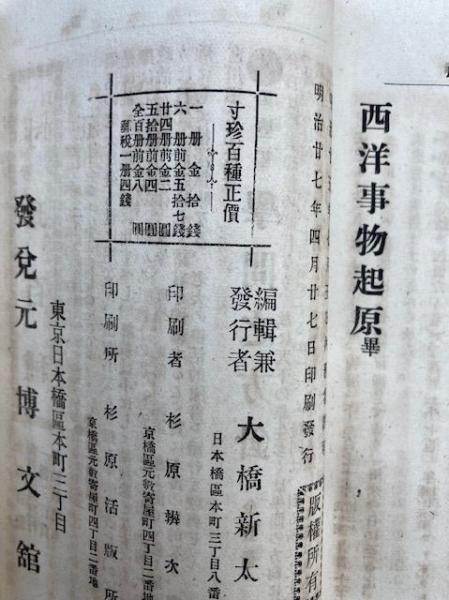 西洋事物起原畢
明治廿七年四月廿七日印刷發行
版權所有
寸珍百種正價
一册金拾錢
六册前金五拾七錢
廿四册前金二圓
五拾册前金四圓
全百册前金八圓
郵税一册四錢
編輯兼
發行者
大橋新太
日本橋區本町三丁目八番
印刷者 杉原辨次
京橋區元數寄屋町四丁目二番地
印刷所 杉原活版所
京橋區元數寄屋町四丁目二番地
東京日本橋區本町三丁目
發兌元 博文館